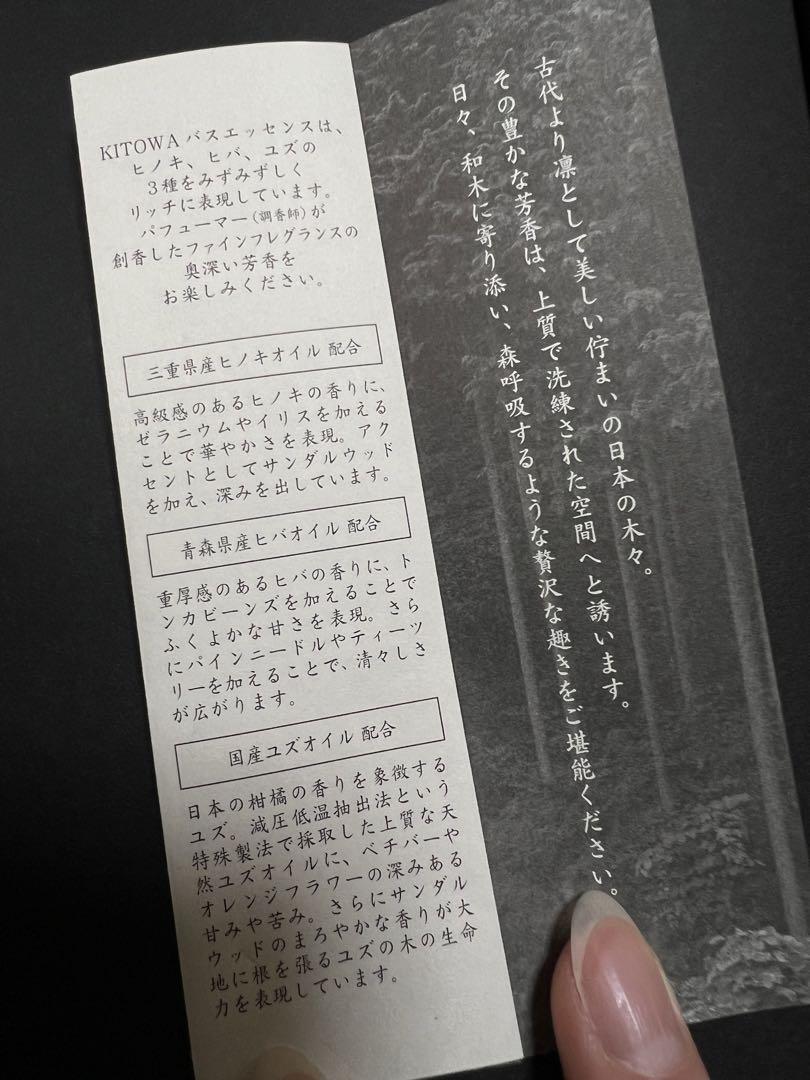 KITOWA バスエッセンスは、
ヒノキ、ヒバ、ユズの
3種をみずみずしく
リッチに表現しています。
パフューマー(調香師)が
創香したファインフレグランスの
奥深い芳香を
お楽しみください。
三重県産ヒノキオイル 配合
高級感のあるヒノキの香りに、
ゼラニウムやイリスを加える
ことで華やかさを表現。アク
セントとしてサンダルウッド
を加え、深みを出しています。
青森県産ヒバオイル 配合
重厚感のあるヒバの香りに、ト
ンカビーンズを加えることで
ふくよかな甘さを表現。さら
にパインニードルやティーツ
リーを加えることで、清々しさ
が広がります。
国産ユズオイル 配合
日本の柑橘の香りを象徴する
ユズ。減圧低温抽出法という
特殊製法で採取した上質な天
然ユズオイルに、ベチバーや
オレンジフラワーの深みある
甘みや苦み。さらにサンダル
ウッドのまろやかな香りが大
地に根を張るユズの木の生命
力を表現しています。
古代より凛として美しい佇まいの日本の木々。
その豊かな芳香は、上質で洗練された空間へと誘います。
日々、和木に寄り添い、森呼吸するような贅沢な趣きをご堪能ください。